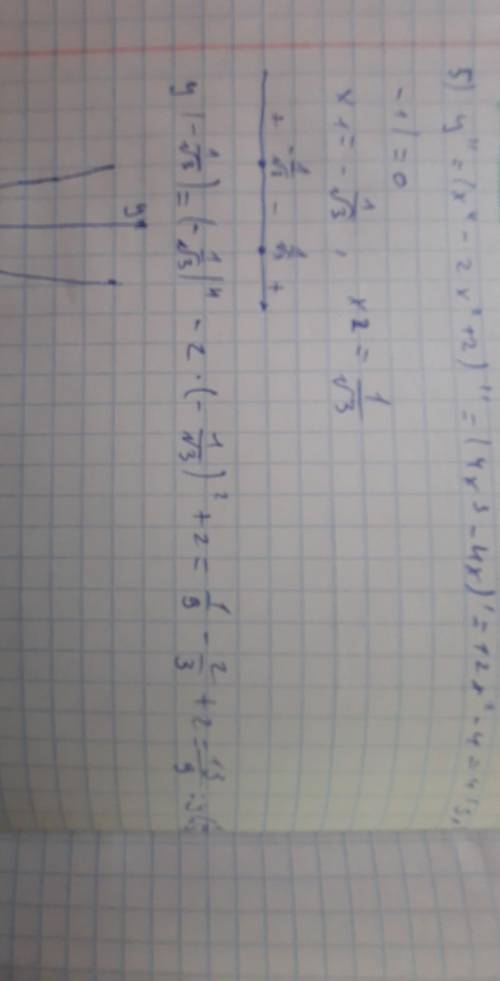 5) y" = (x⁴ - 2x² + 2)" = (4x³ - 4x)' = 12x² - 4 = 4(3
-1) = 0
x1 = -1/√3, x2 = 1/√3
+ -1/√3 - 1/√3 +
y(-1/√3) = (-1/√3)⁴ - 2·(-1/√3)² + 2 = 1/9 - 2/3 + 2 = 13/9
y